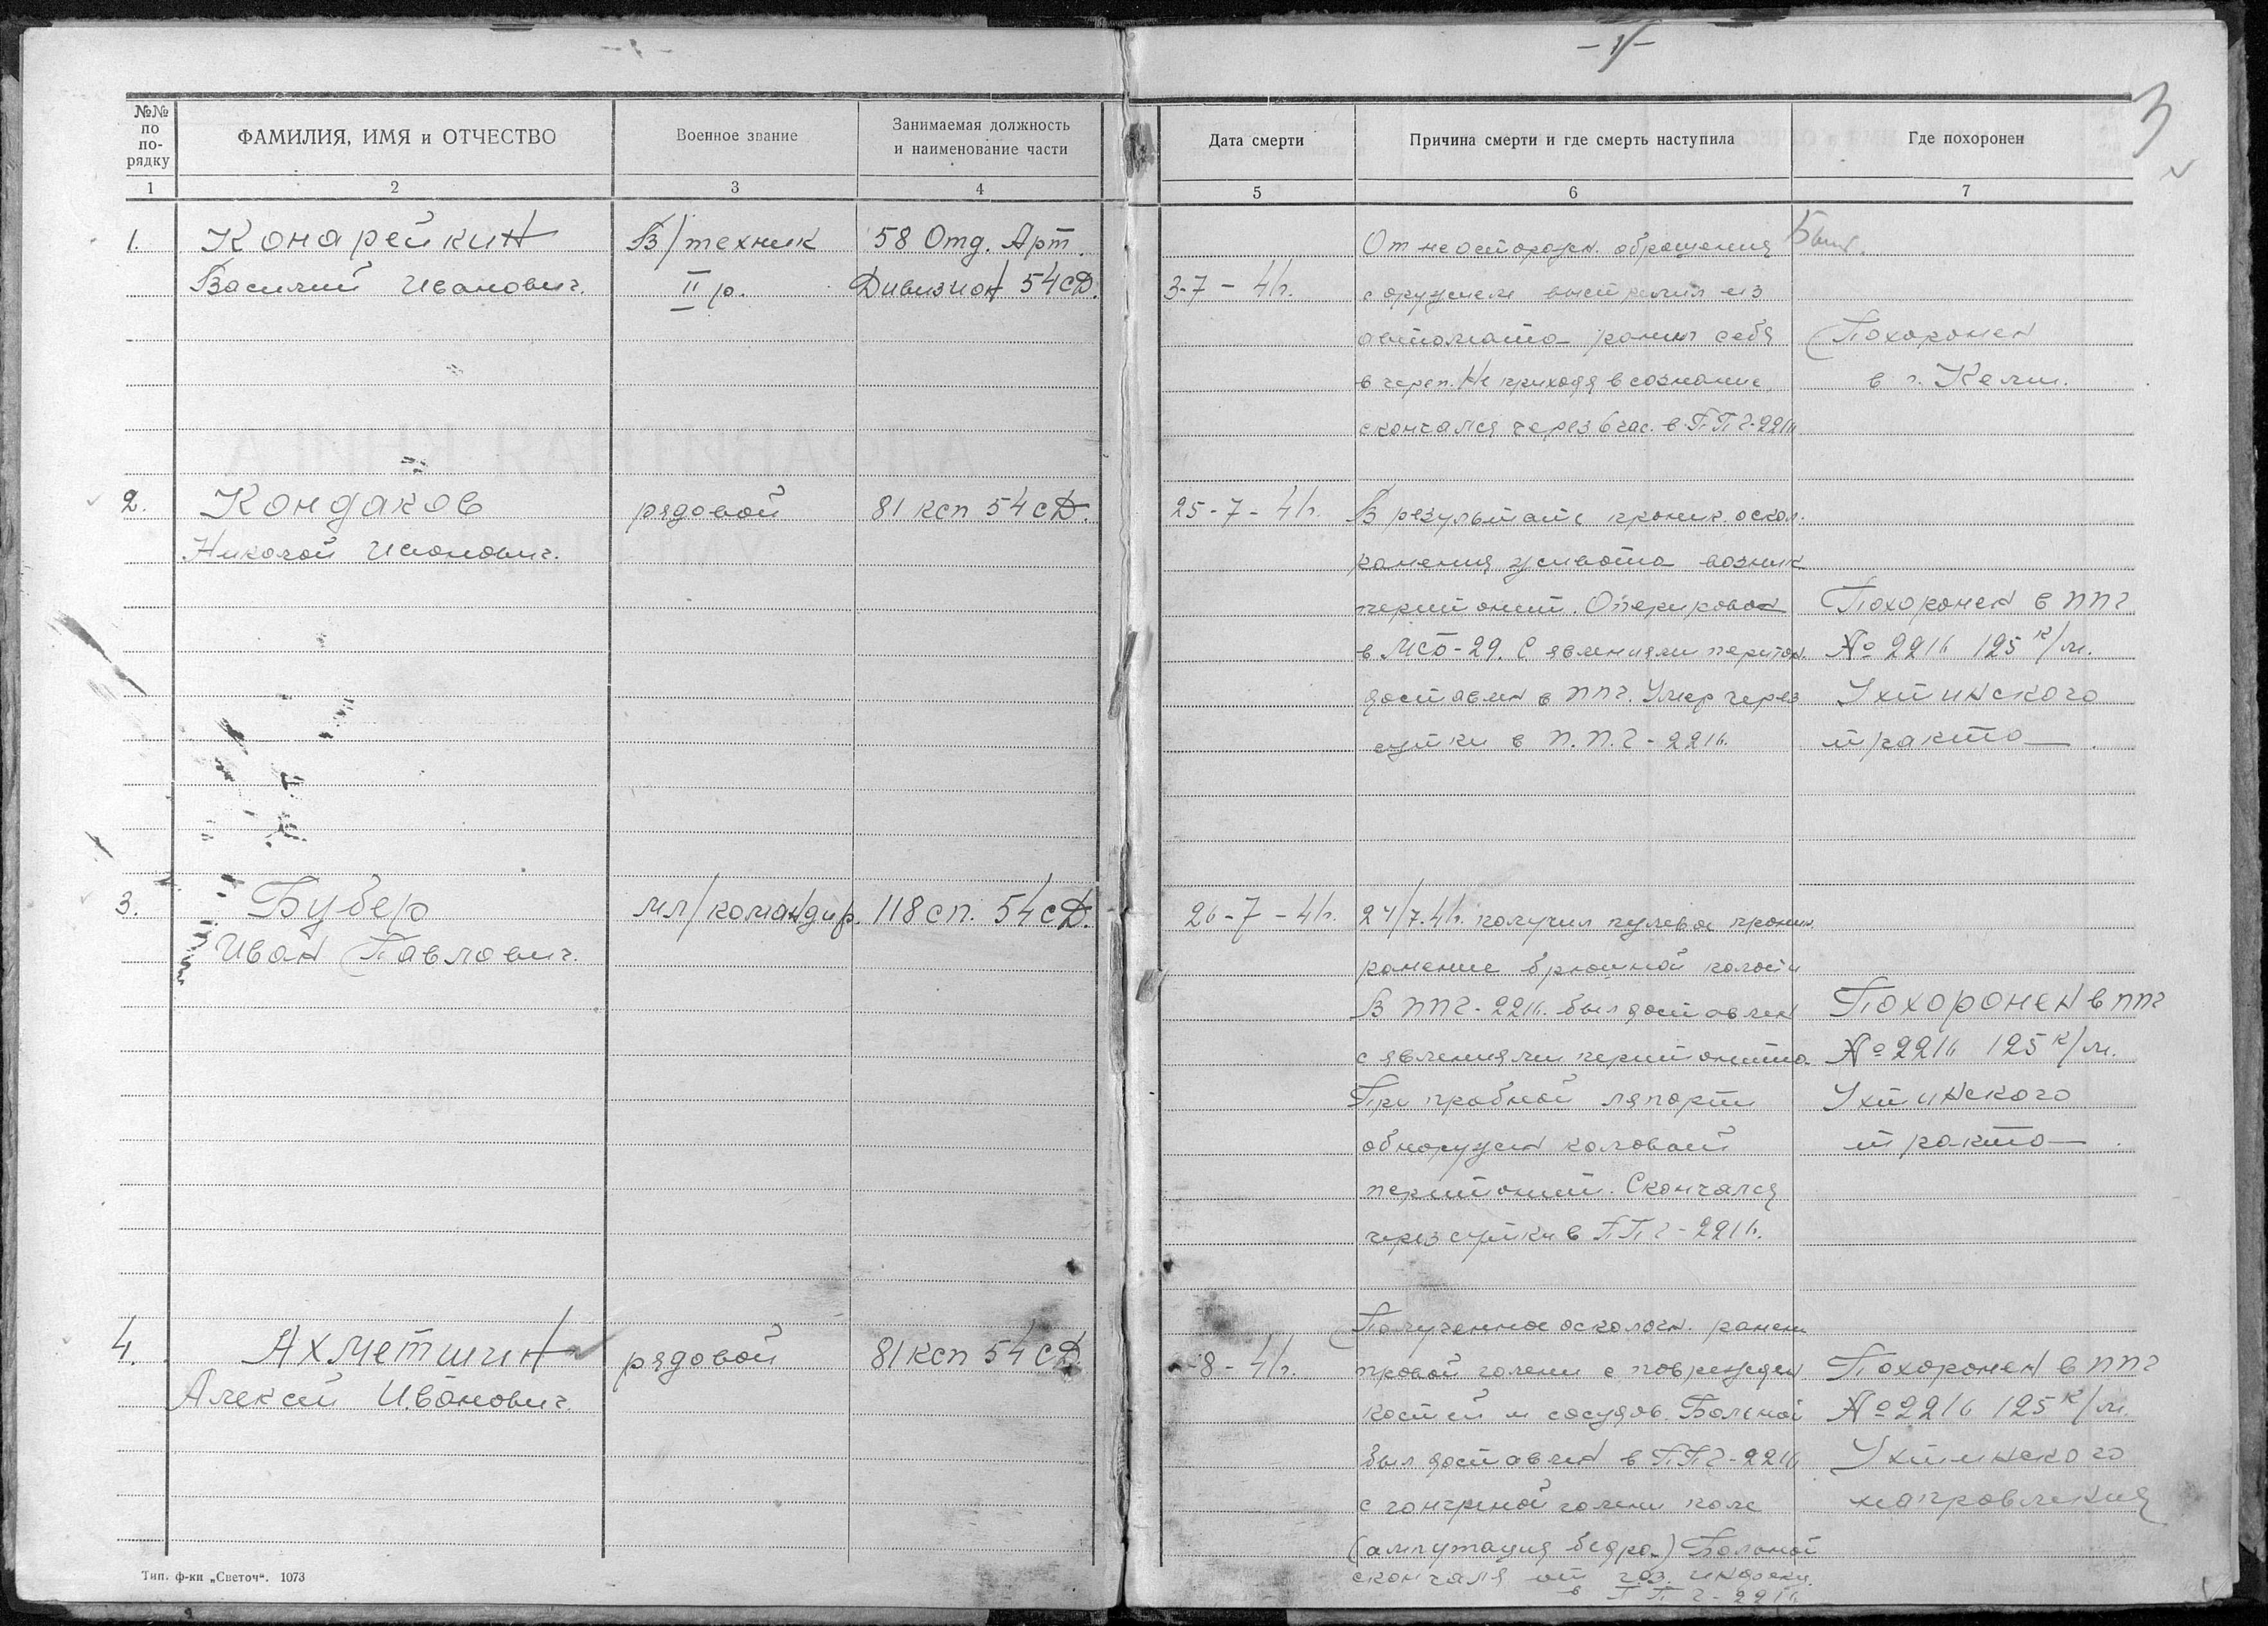 - 1 -
3
№№ по по-рядку
ФАМИЛИЯ, ИМЯ и ОТЧЕСТВО
Военное звание
Занимаемая должность
и наименование части
Дата смерти
Причина смерти и где смерть наступила
Где похоронен
1 2 3 4 5 6 7
1. Конарейкин
Василий Иванович.
В/техник
II р.
58 Отд. Арт.
Дивизион 54 сД.
3-7-41г.
От неосторожн. обращения
с оружием выстрелил из
автомата ранил себя
в череп. Не приходя в сознание
скончался через 6 час. в ППГ-2211
Похоронен
в г. Кеми.
2. Кондаков
Николай
рядовой
81 ксп 54 сД.
25-7-41г.
В результате проник. оскол.
ранения живота возник
перитонит. Оперирован
в МСБ-29. С явлениями перитон.
доставлен в ппг. Умер через
сутки в П.П.Г-2211.
Похоронен в ппг
№ 2211 125 к/м.
Ухтинского
тракта
3. Бубер
Иван Павлович.
мл/командир.
118 сп. 54 сД.
26-7-41г.
24/7.41г. получил пулевое проник.
ранение брюшной полости
В ППГ-2211. был доставлен
с явлениями перитонита
При пробной лапорт
обнаружен каловый
перитонит. Скончался
через сутки в ППГ-2211.
Похоронен в ппг
№ 2211 125 к/м.
Ухтинского
тракта
4. Ахметшин
Алексей Иванович.
рядовой
81 ксп 54 сД
-8-41г.
Полученное осколочн. ранен
правой голени с поврежден
костей и сосудов. Больной
был доставлен в ППГ-2211
с гангреной голени
(ампутация бедра.) Больной
скончался от газ. инфекц.
в ППГ-2211
Похоронен в ппг
№ 2211 125 к/м.
Ухтинского
направления
Тип. ф-ки „Светоч“. 1073